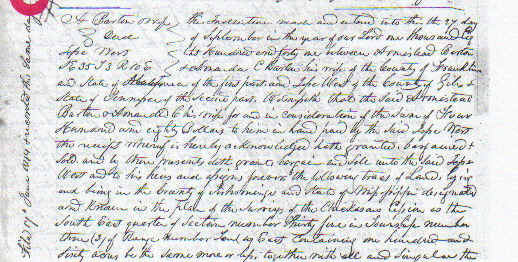 A Barton & Wife
To Deed
Lope West
SE 35 T 3 R 10 E
This Indenture made and entered into this the 27 day
of September in the year of our Lord one thousand Eig
ht Hundred and forty one between Armistead Barton
& Amanda C Barton his wife of the County of Franklin
and State of of the first part, and Lope West of the County of Giles &
State of Tennessee of the second part, Witnesseth that the said Armistead
Barton & Amanda C his wife for and in Consideration of the sum of Four
Hundred and eighty Dollars to them in hand paid by the Said Lope West
the receipt whereof is hereby acknowledged hath granted, bargained &
Sold and by these presents doth grant, bargain and Sell unto the said Lope
West and to his heirs and assigns forever the following tract of Land, lying
and being in the County of Tishomingo and State of Mississippi designated
and known in the plan of the Survey of the Chickasaw Cession as the
South East quarter of Section number Thirty five in Township number
three (3) of Range number Ten East Containing one hundred and
Sixty acres be the same more or less, together with all and Singular the
Filed 9th June 1842 & recorded the same day